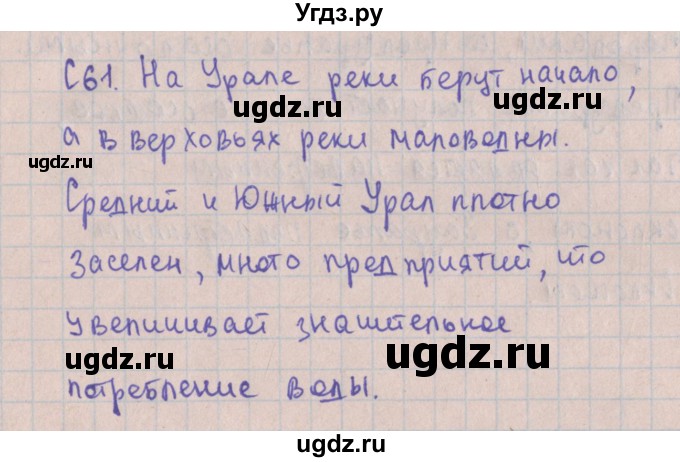 Угдз.ру
С61. На Урале реки берут начало,
ugdz.ru ugdz.ru
а в верховьях реки маловодны.
ugdz.ru
Средний и Южный Урал плотно
ugdz.ru ugdz.ru
заселен, много предприятий, что
ugdz.ru
увеличивает значительное
ugdz.ru ugdz.ru
потребление воды.
ugdz.ru